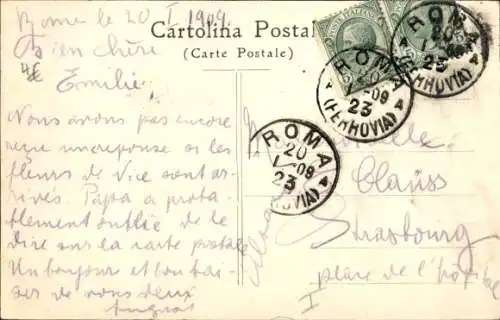 Rome le 20 I 1909.
Cartolina Postale
(Carte Postale)
Bien chère
Emilie
Nous avons pas encore
reçu une reponse si les
fleurs de Nice sont ar-
rivés. Papa a proba-
blement oublié de le
dire sur la carte postale
Un bonjour et bon bai-
ser de nous deux
ROMA
20
1-09
23
(FERROVIA)
ROMA
20
1-09
23
(FERROVIA)
ROMA
20
1-09
23
(FERROVIA)
Mademoiselle
Clauss
Strasbourg
place de l'hôpital
I